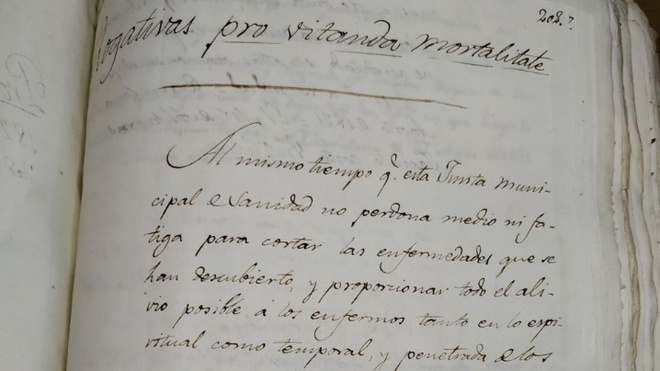 202.ª
Rogativas pro vitanda mortalitate
Al mismo tiempo q.e esta Junta muni-
cipal de Sanidad no perdona medio ni fa-
tiga para cortar las enfermedades que se
han descubierto, y proporcionar todo el ali-
vio posible á los enfermos tanto en lo espi-
ritual como temporal, y penetrada de los